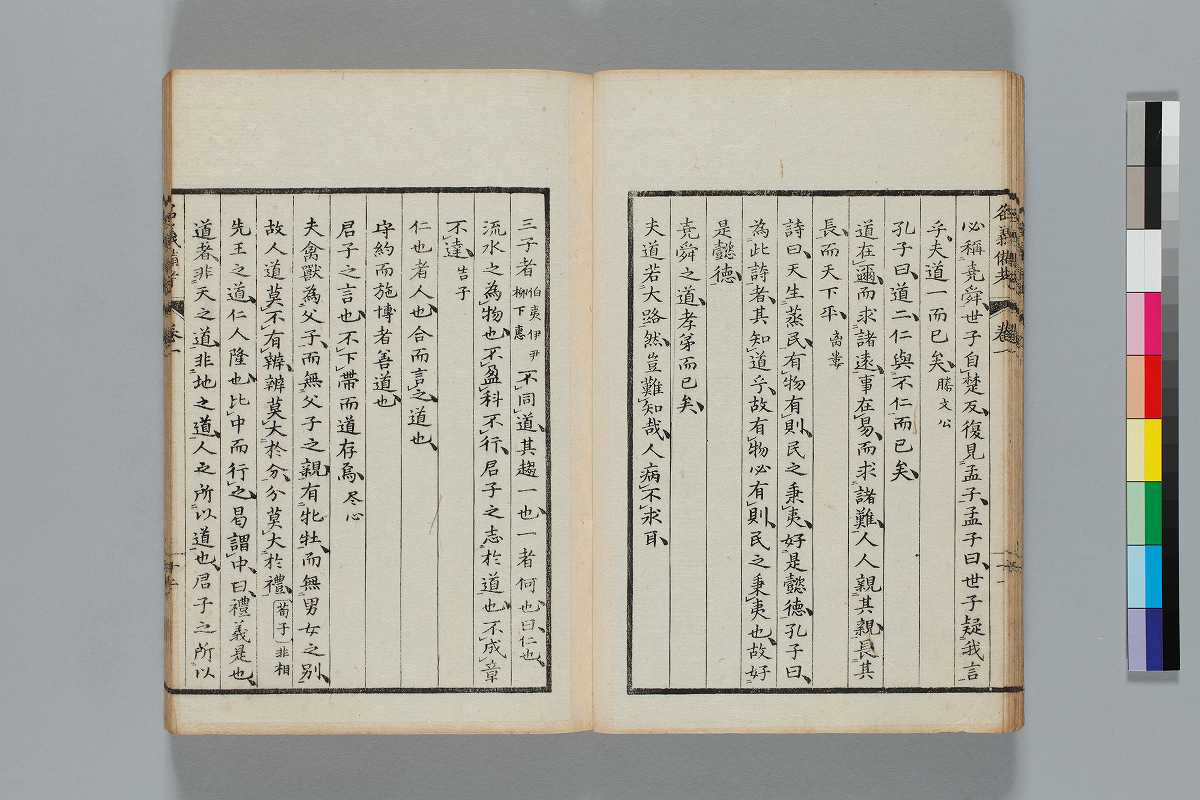 必稱堯舜、世子自楚反、復見孟子、孟子曰、世子疑我言
乎、夫道一而已矣、滕文公
孔子曰、道二、仁與不仁而已矣、
道在爾、而求諸遠、事在易、而求諸難、人人親其親、長其
長而天下平、離婁
詩曰、天生蒸民、有物有則、民之秉夷、好是懿德、孔子曰、
為此詩者、其知道乎、故有物必有則、民之秉夷也、故好
是懿德、
堯舜之道、孝弟而已矣、
夫道若大路然、豈難知哉、人病不求耳、
三子者伯夷伊尹柳下惠不同道、其趨一也、一者何也、曰仁也、
流水之為物也、不盈科不行、君子之志於道也、不成章
不達、告子
仁也者人也、合而言之道也、
守約而施博者善道也、
君子之言也、不下帶而道存焉、尽心
夫禽獸為父子、而無父子之親、有牝牡、而無男女之別、
故人道莫不有辨、辨莫大於分、分莫大於禮、荀子非相
先王之道、仁人隆也、比中而行之、曷謂中、曰、禮義是也、
道者非天之道、非地之道、人之所以道也、君子之所以